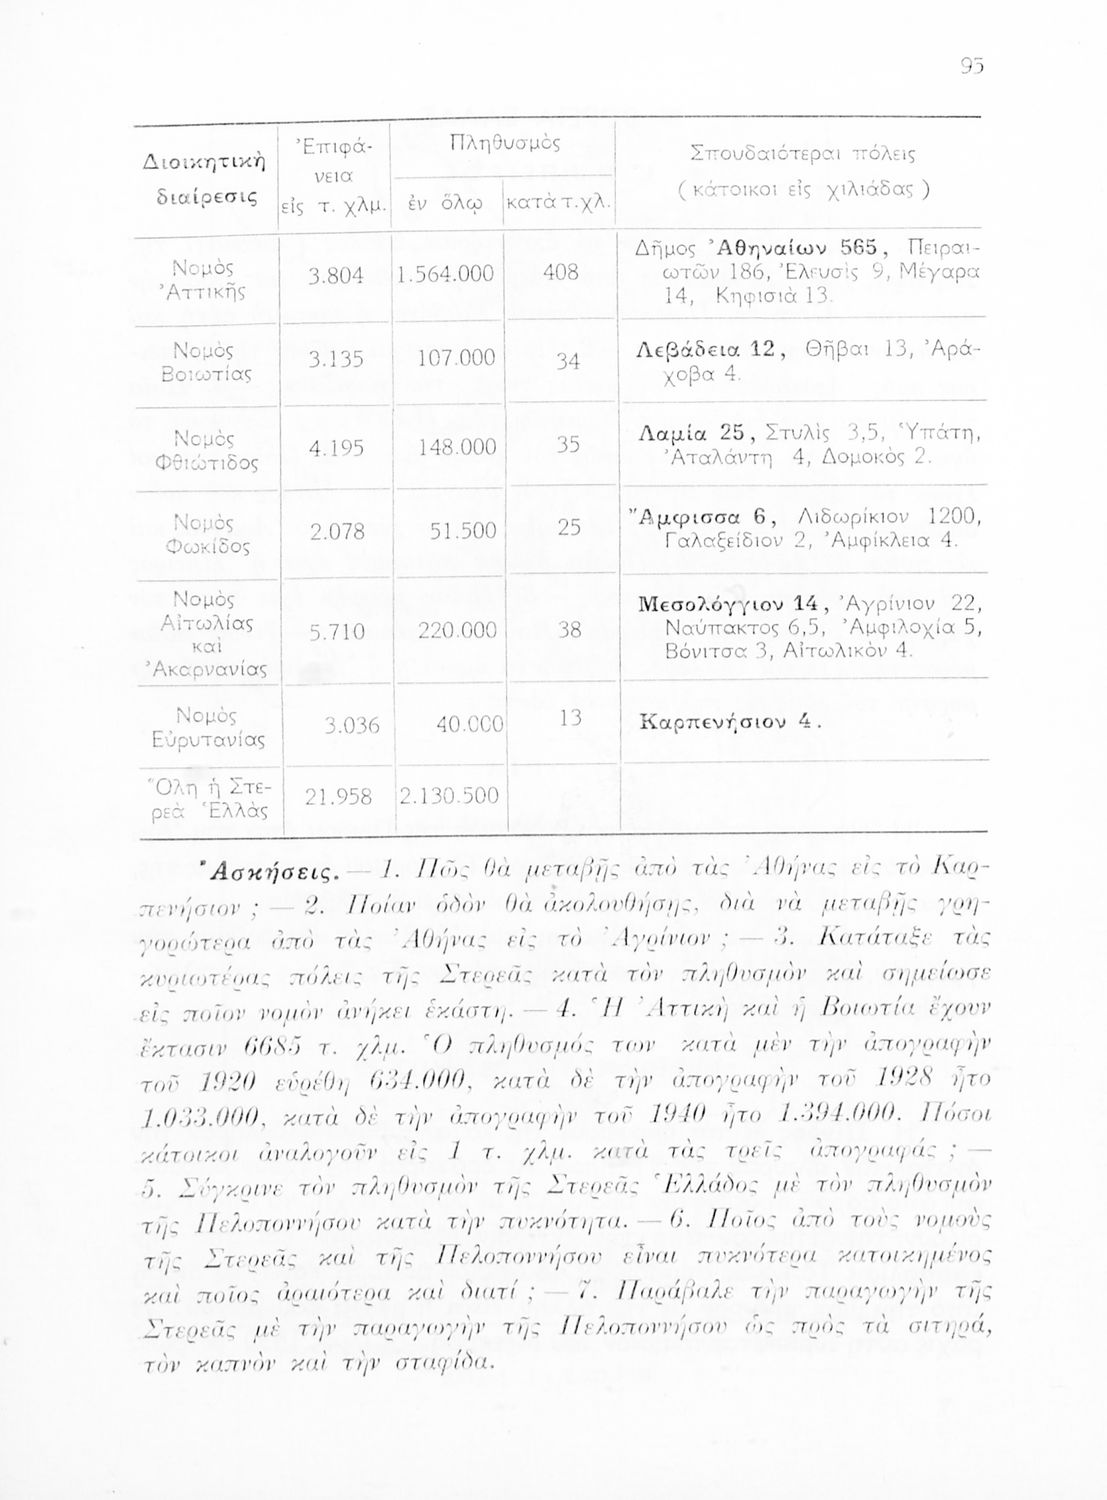 95
Διοικητικὴ διαίρεσις
Ἐπιφά-
νεια
εἰς τ. χλμ.
Πληθυσμὸς
ἐν ὅλῳ
κατὰ τ.χλ.
Σπουδαιότεραι πόλεις
( κάτοικοι εἰς χιλιάδας )
Νομὸς
Ἀττικῆς
3.804
1.564.000
408
Δῆμος Ἀθηναίων 565, Πειραι-
ωτῶν 186, Ἐλευσὶς 9, Μέγαρα
14, Κηφισιὰ 13.
Νομὸς
Βοιωτίας
3.135
107.000
34
Λεβάδεια 12, Θῆβαι 13, Ἀρά-
χοβα 4.
Νομὸς
Φθιώτιδος
4.195
148.000
35
Λαμία 25, Στυλὶς 3,5, Ὑπάτη,
Ἀταλάντη 4, Δομοκὸς 2.
Νομὸς
Φωκίδος
2.078
51.500
25
Ἄμφισσα 6, Λιδωρίκιον 1200,
Γαλαξείδιον 2, Ἀμφίκλεια 4.
Νομὸς
Αἰτωλίας
καὶ
Ἀκαρνανίας
5.710
220.000
38
Μεσολόγγιον 14, Ἀγρίνιον 22,
Ναύπακτος 6,5, Ἀμφιλοχία 5,
Βόνιτσα 3, Αἰτωλικὸν 4.
Νομὸς
Εὐρυτανίας
3.036
40.000
13
Καρπενήσιον 4.
Ὅλη ἡ Στε-
ρεὰ Ἑλλὰς
21.958
2.130.500
Ἀσκήσεις. — 1. Πῶς θὰ μεταβῇς ἀπὸ τὰς Ἀθήνας εἰς τὸ Καρ-
πενήσιον ; — 2. Ποίαν ὁδὸν θὰ ἀκολουθήσῃς, διὰ νὰ μεταβῇς γρη-
γορώτερα ἀπὸ τὰς Ἀθήνας εἰς τὸ Ἀγρίνιον ; — 3. Κατάταξε τὰς
κυριωτέρας πόλεις τῆς Στερεᾶς κατὰ τὸν πληθυσμὸν καὶ σημείωσε
εἰς ποῖον νομὸν ἀνήκει ἑκάστη. — 4. Ἡ Ἀττικὴ καὶ ἡ Βοιωτία ἔχουν
ἔκτασιν 6685 τ. χλμ. Ὁ πληθυσμός των κατὰ μὲν τὴν ἀπογραφὴν
τοῦ 1920 εὑρέθη 634.000, κατὰ δὲ τὴν ἀπογραφὴν τοῦ 1928 ἦτο
1.033.000, κατὰ δὲ τὴν ἀπογραφὴν τοῦ 1940 ἦτο 1.394.000. Πόσοι
κάτοικοι ἀναλογοῦν εἰς 1 τ. χλμ. κατὰ τὰς τρεῖς ἀπογραφάς ; —
5. Σύγκρινε τὸν πληθυσμὸν τῆς Στερεᾶς Ἑλλάδος μὲ τὸν πληθυσμὸν
τῆς Πελοποννήσου κατὰ τὴν πυκνότητα. — 6. Ποῖος ἀπὸ τοὺς νομοὺς
τῆς Στερεᾶς καὶ τῆς Πελοποννήσου εἶναι πυκνότερα κατοικημένος
καὶ ποῖος ἀραιότερα καὶ διατί ; — 7. Παράβαλε τὴν παραγωγὴν τῆς
Στερεᾶς μὲ τὴν παραγωγὴν τῆς Πελοποννήσου ὡς πρὸς τὰ σιτηρά,
τὸν καπνὸν καὶ τὴν σταφίδα.